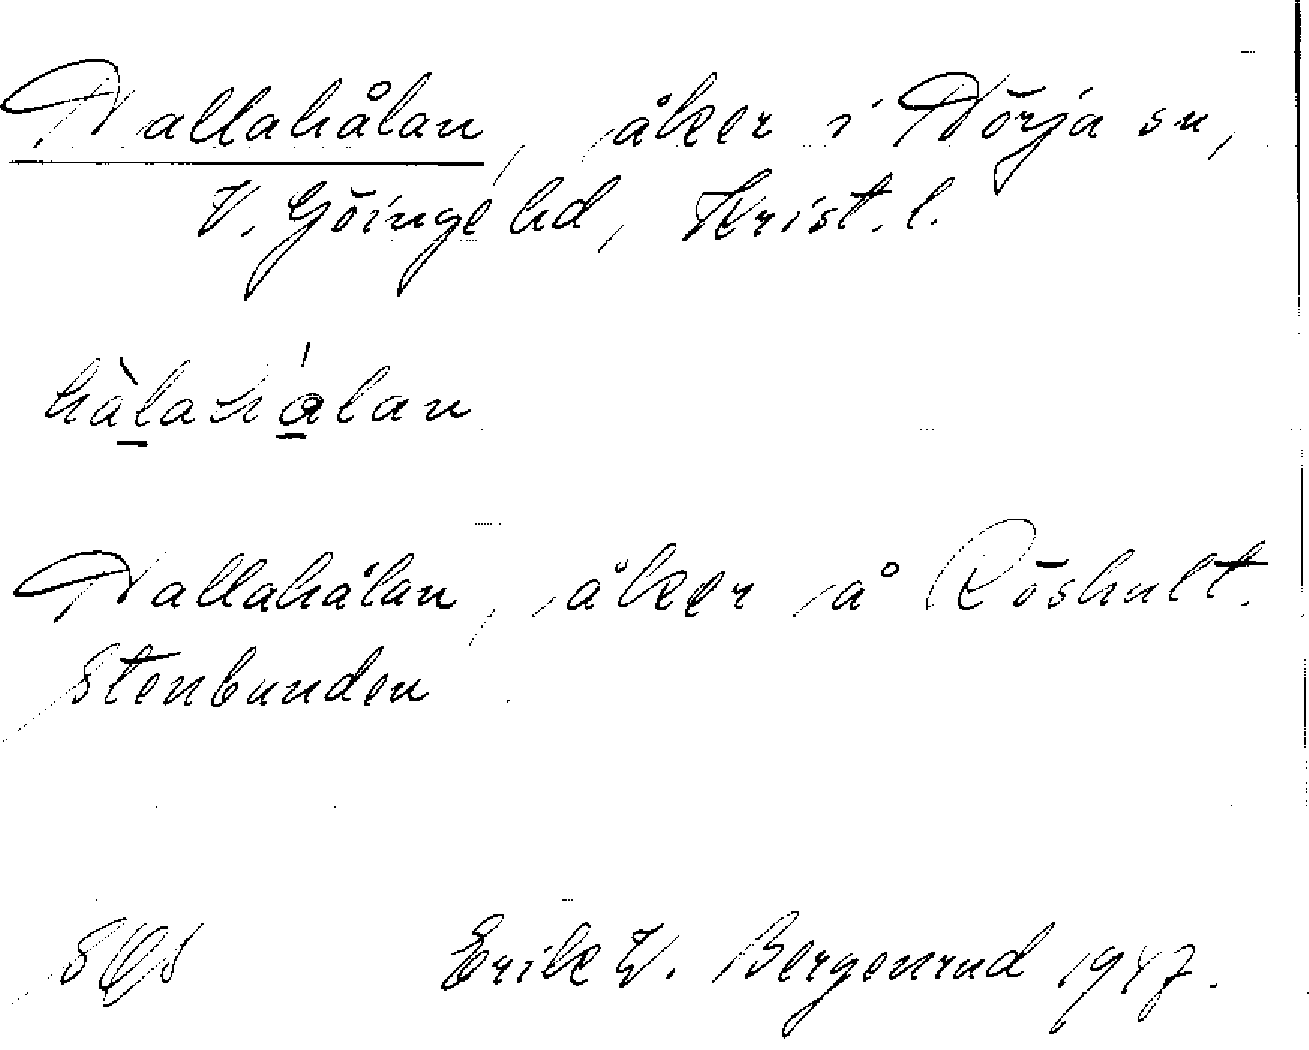 Hallahålan, åker i Hörja sn,
V. Göinge hd, Krist. l.
hàlahálan
Hallahålan, åker å Röshult.
Stenbunden
Erik W. Bergenrud 1947.